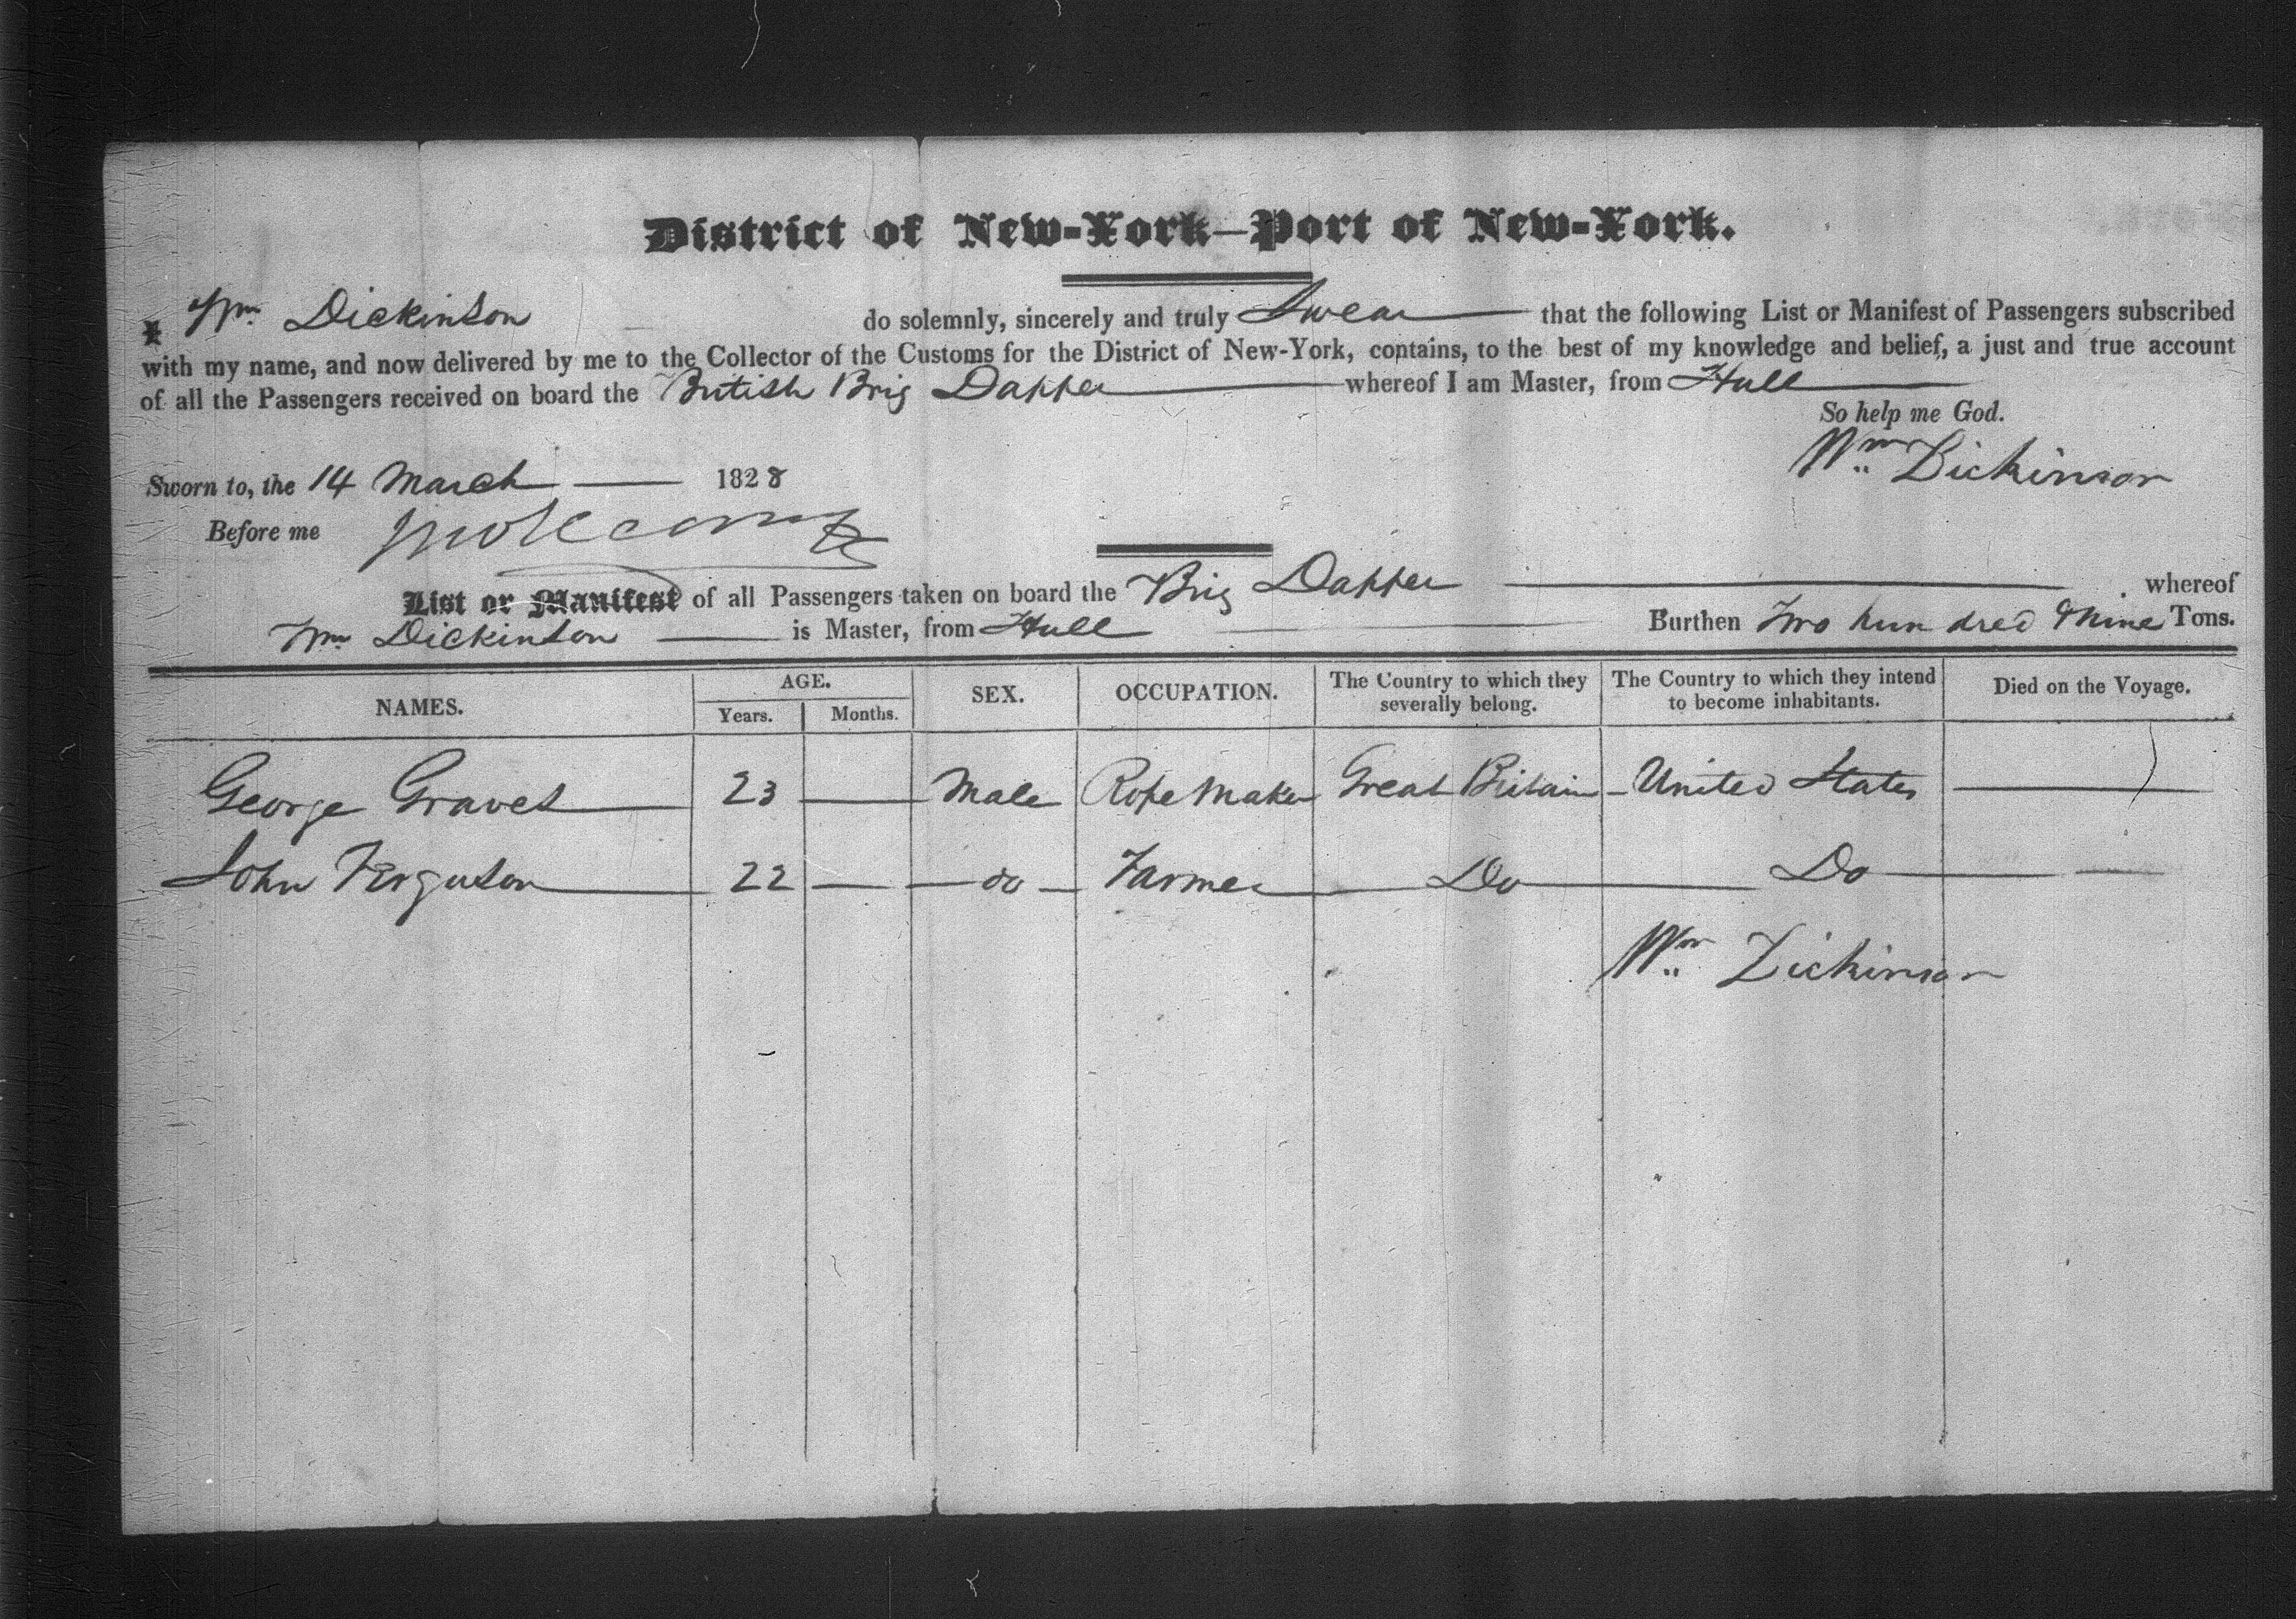 District of New-York—Port of New-York.
I Wm Dickinson do solemnly, sincerely and truly Swear that the following List or Manifest of Passengers subscribed
with my name, and now delivered by me to the Collector of the Customs for the District of New-York, contains, to the best of my knowledge and belief, a just and true account
of all the Passengers received on board the British Brig Dapper whereof I am Master, from Hull
So help me God.
Wm Dickinson
Sworn to, the 14 March 1828
Before me
List or Manifest of all Passengers taken on board the Brig Dapper whereof
Wm Dickinson is Master, from Hull Burthen Two hundred & nine Tons.
NAMES. AGE. Years. Months. SEX. OCCUPATION. The Country to which they severally belong. The Country to which they intend to become inhabitants. Died on the Voyage.
George Graves 23 — Male Rope Maker Great Britain United States —
John Ferguson 22 — do Farmer Do Do —
Wm Dickinson